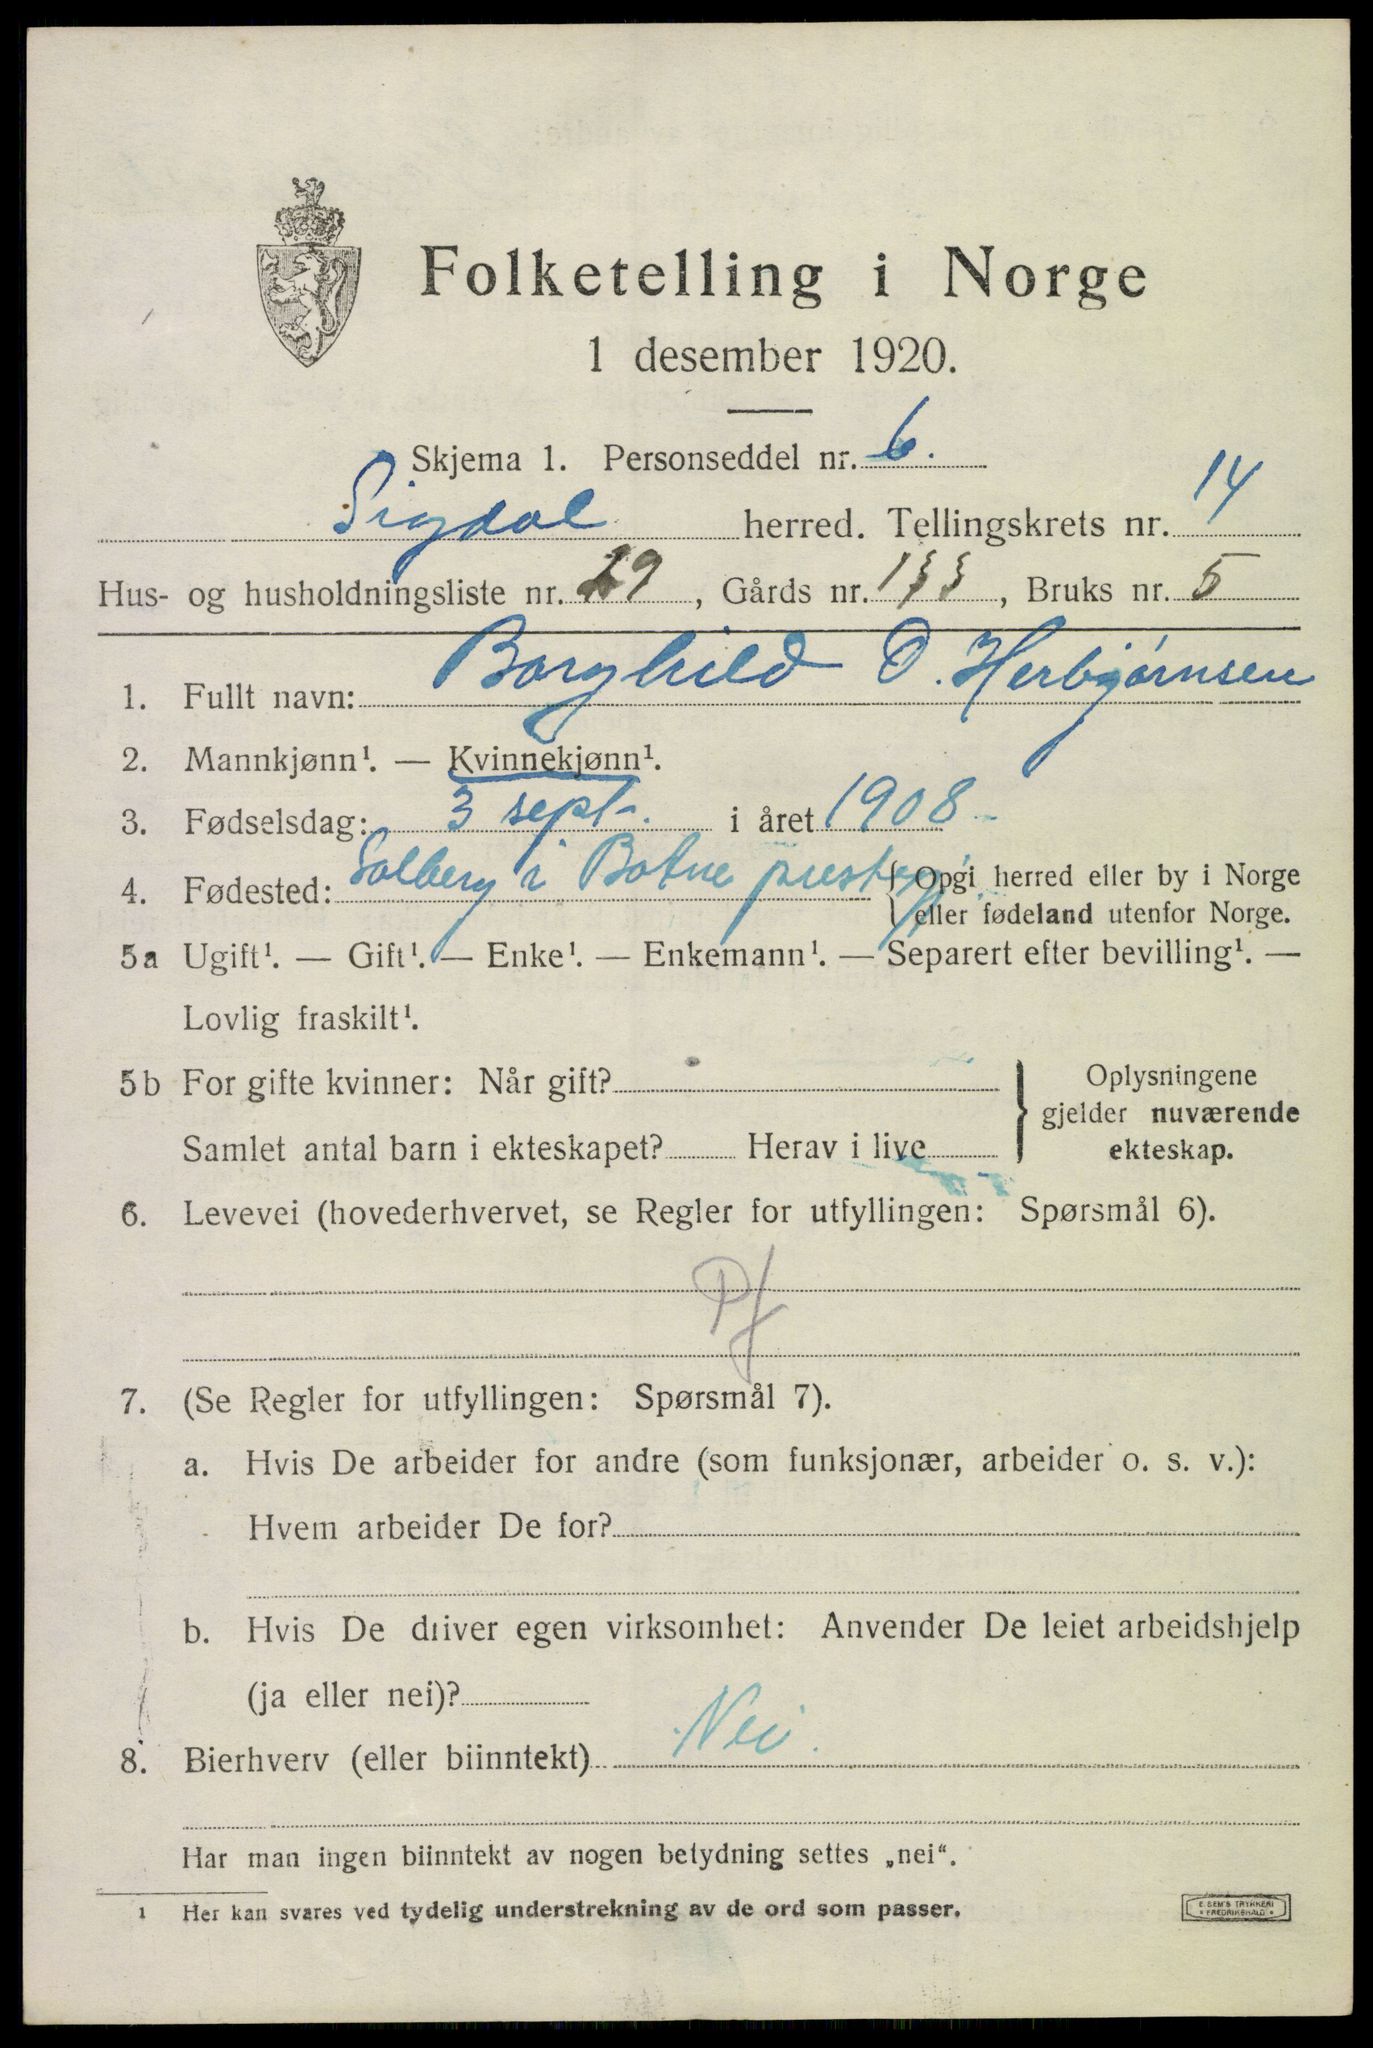 Folketelling i Norge
1 desember 1920.
Skjema 1. Personseddel nr. 6.
Sigdal herred. Tellingskrets nr. 14
Hus- og husholdningsliste nr. 29, Gårds nr. 133, Bruks nr. 5
1. Fullt navn: Borghild O. Herbjørnsen
2. Mannkjønn¹. — Kvinnekjønn¹.
3. Fødselsdag: 3 sept. i året 1908
4. Fødested: Solberg i Botne prestegj { Opgi herred eller by i Norge
eller fødeland utenfor Norge.
5a Ugift¹. — Gift¹. — Enke¹. — Enkemann¹. — Separert efter bevilling¹. —
Lovlig fraskilt¹.
5b For gifte kvinner: Når gift? } Oplysningene
gjelder nuværende
Samlet antal barn i ekteskapet? Herav i live
ekteskap.
6. Levevei (hovederhvervet, se Regler for utfyllingen: Spørsmål 6).
Pf
7. (Se Regler for utfyllingen: Spørsmål 7).
a. Hvis De arbeider for andre (som funksjonær, arbeider o. s. v.):
Hvem arbeider De for?
b. Hvis De driver egen virksomhet: Anvender De leiet arbeidshjelp
(ja eller nei)?
8. Bierhverv (eller biinntekt) Nei.
Har man ingen biinntekt av nogen betydning settes „nei“.
¹ Her kan svares ved tydelig understrekning av de ord som passer.
E. SEM'S TRYKKERI
FREDRIKSHALD